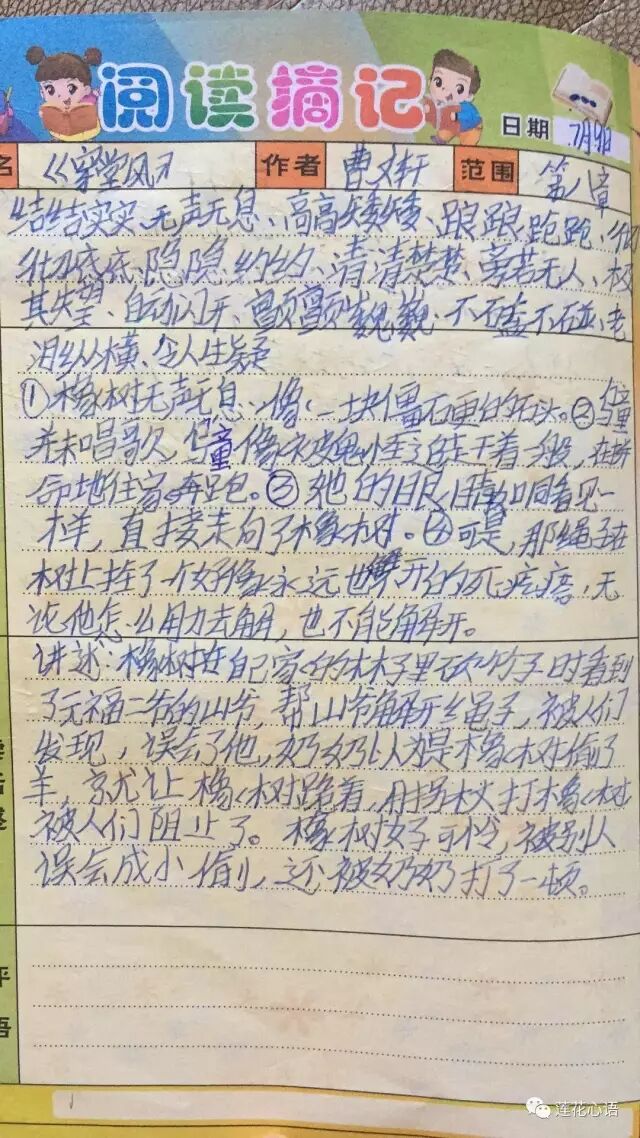 阅读摘记
日期 7月9日
名 《穿堂风》 作者 曹文轩 范围 第八章
结结实实、无声无息、高高矮矮、踉踉跄跄、彻
彻底底、隐隐约约、清清楚楚、旁若无人、极
其失望、自动闪开、颤颤巍巍、不磕不碰、老
泪纵横、令人生疑
①橡树无声无息、像一块僵硬的石头。②乌童
并未唱歌，乌童像被鬼怪追赶着一般，在拼
命地往家奔跑。③她的眼睛如同看见一
样，直接走向了橡树。④可是，那绳子在
树上拴了一个好像永远也解不开的死疙瘩，无
论他怎么用力去解，也不能解开。
讲述：橡树在自己家的林子里砍竹子时看到
了元福二爷的山爷，帮山爷解开绳子，被人们
发现，误会了他，奶奶以为是橡树偷了
羊，就让橡树跪着，用拐杖打橡树
被人们阻止了。橡树好可怜，被别人
误会成小偷，还被奶奶打了一顿。
评
语
莲花心语